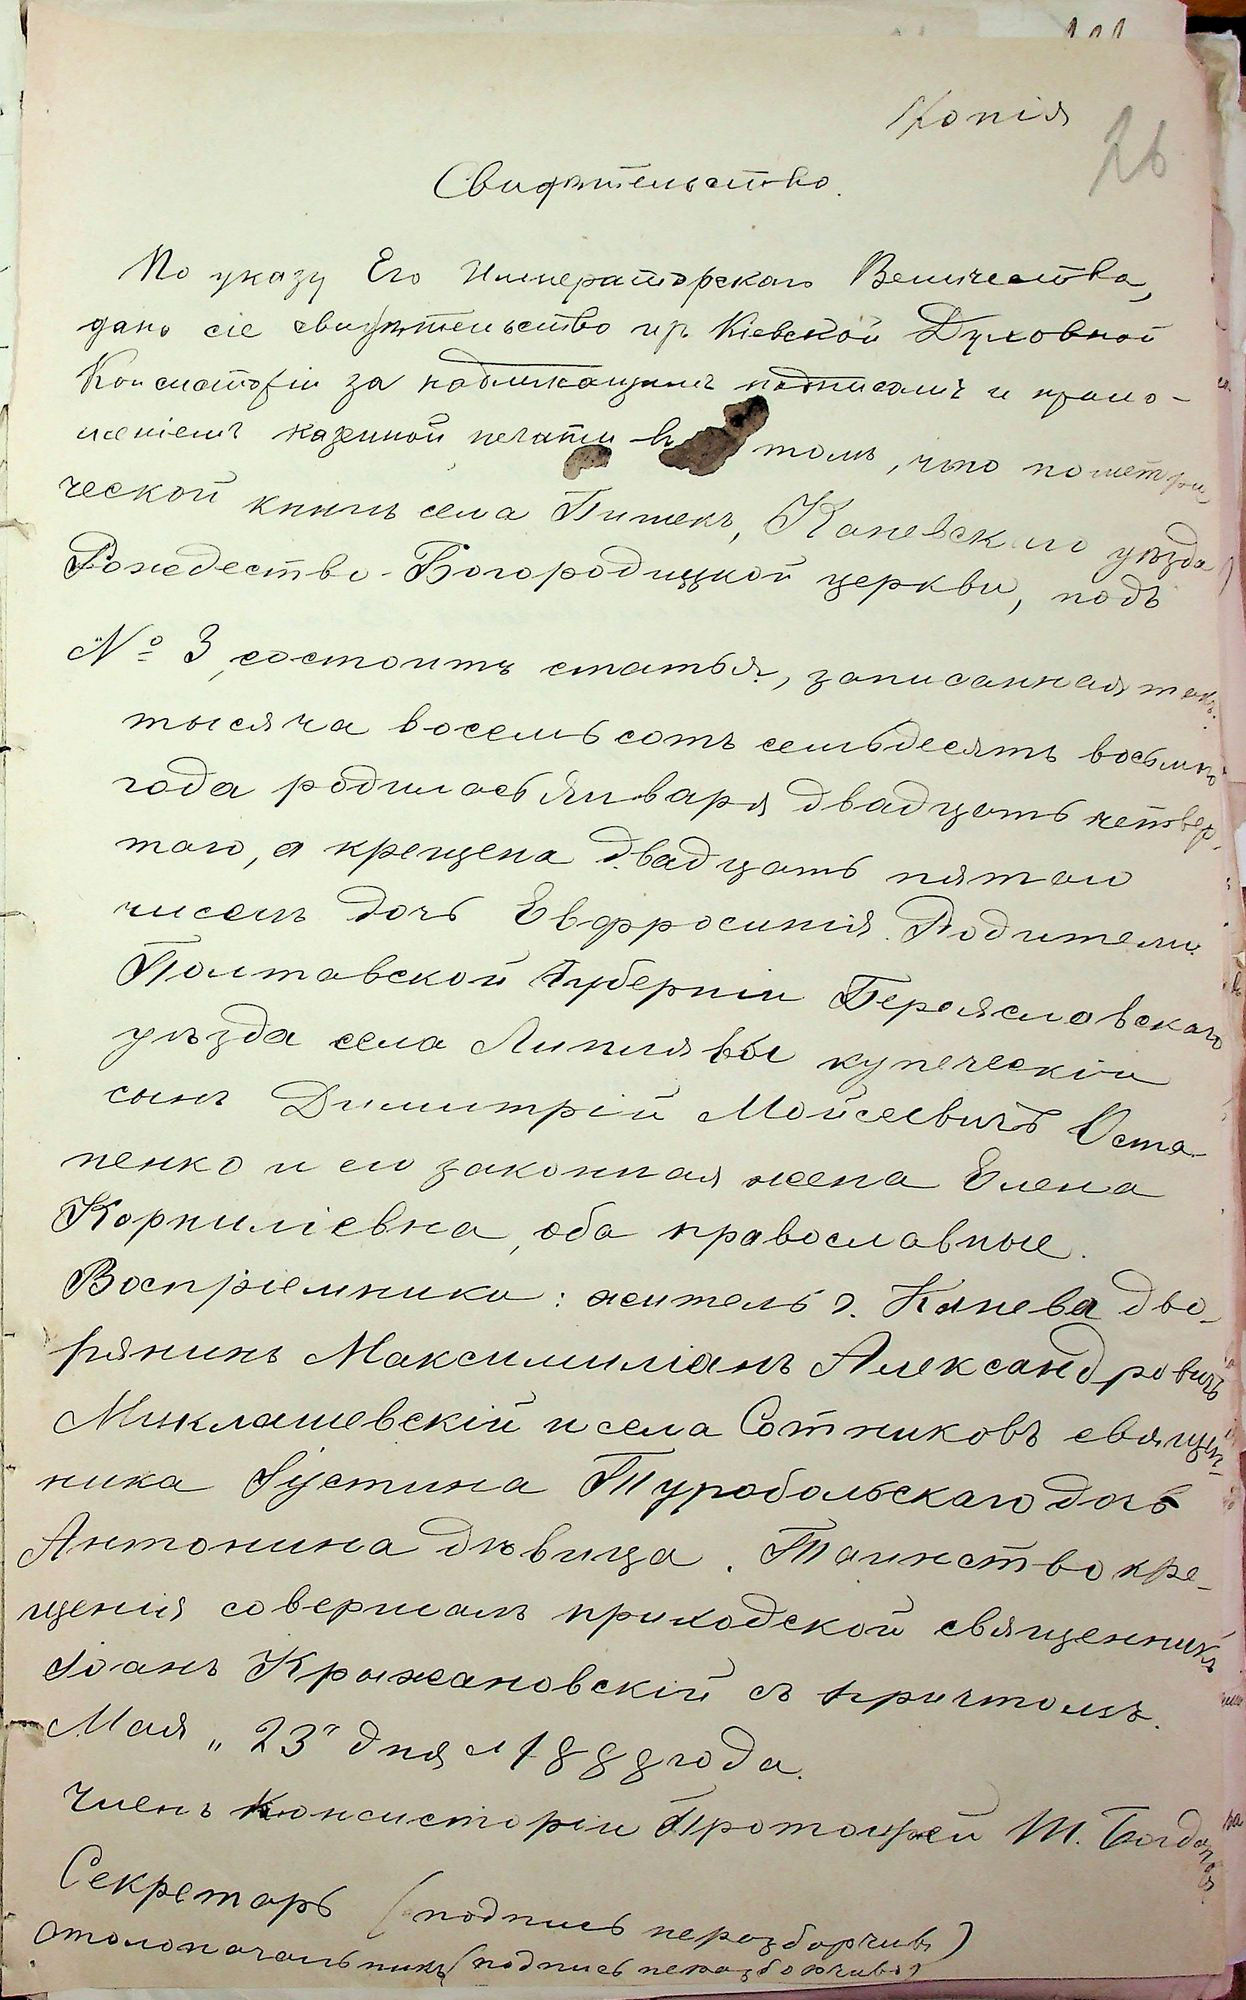 Копія
26
Свидѣтельство.
По указу Его Императорскаго Величества,
дано сіе свидѣтельство изъ Кіевской Духовной
Консисторіи за надлежащимъ подписомъ и прило-
женіемъ казенной печати въ томъ, что по метри
ческой книгѣ села Пишекъ, Каневскаго уѣзда
Рождество-Богородицкой церкви, подъ
№ 3, состоитъ статья, записанная такъ:
тысяча восемьсотъ семьдесятъ восьмого
года родилась Января двадцать четвер-
таго, а крещена двадцать пятаго
чиселъ дочь Евфросинія. Родители
Полтавской губерніи Переяславскаго
уѣзда села Липлявы купеческій
сынъ Димитрій Мойсеевичъ Оста-
пенко и его законная жена Елена
Корниліевна, оба православные.
Воспріемники: житель г. Канева дво-
рянинъ Максимиліанъ Александровичъ
Миклашевскій и села Сотниковъ священ-
ника Іустина Туробольскаго дочь
Антонина дѣвица. Таинство кре-
щенія совершалъ приходской священникъ
Іоанъ Крыжановскій съ причтомъ.
Мая „23" дня 1888 года.
Членъ Консисторіи Протоіерей
Секретарь (подпись неразборчива)
Столоначальникъ (подпись неразборчива)